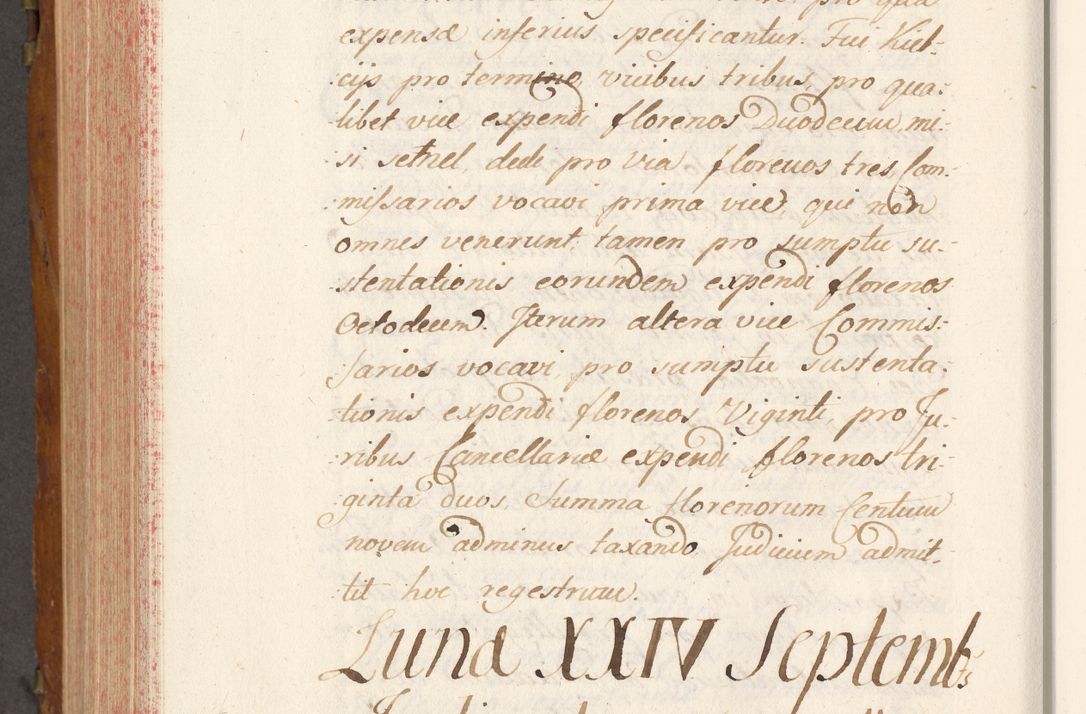 expensæ inferius specificantur. Fui Kiel-
cijs pro termino, vicibus tribus, pro qua:
libet vice expendi florenos Duodecim, mi:
si semel, dedi pro via florenos tres, Com:
missarios vocavi prima vice, qui non
omnes venerunt, tamen pro sumptu su:
stentationis eorundem expendi florenos
Octodecem. Iterum altera vice Commis:
sarios vocavi, pro sumptu sustenta:
tionis expendi florenos Viginti, pro Ju:
ribus Cancellariæ expendi florenos tri:
ginta duos, Summa florenorum Centum
novem adminus taxando Judicium admit-
tit hoc regestrum.
Lunæ XXIV Septembris